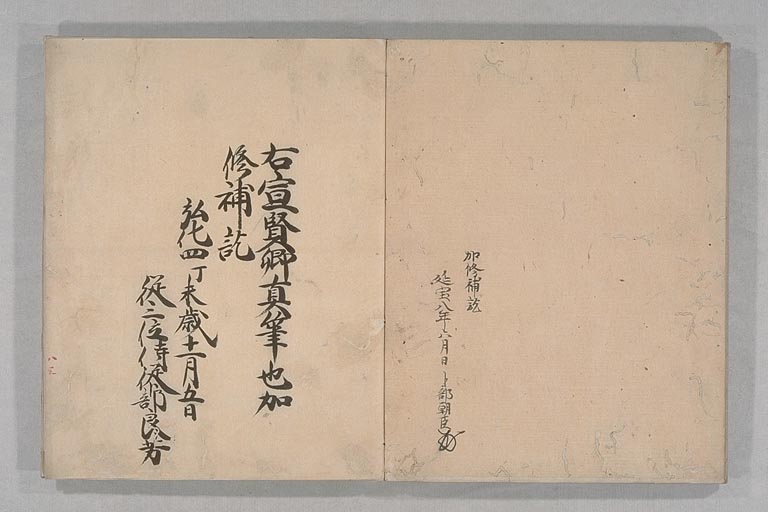 加修補訖
延宝八年八月日 卜部朝臣
右宣賢卿真筆也加
修補訖
弘化四丁未歳十一月五日
従二位侍従卜部良芳